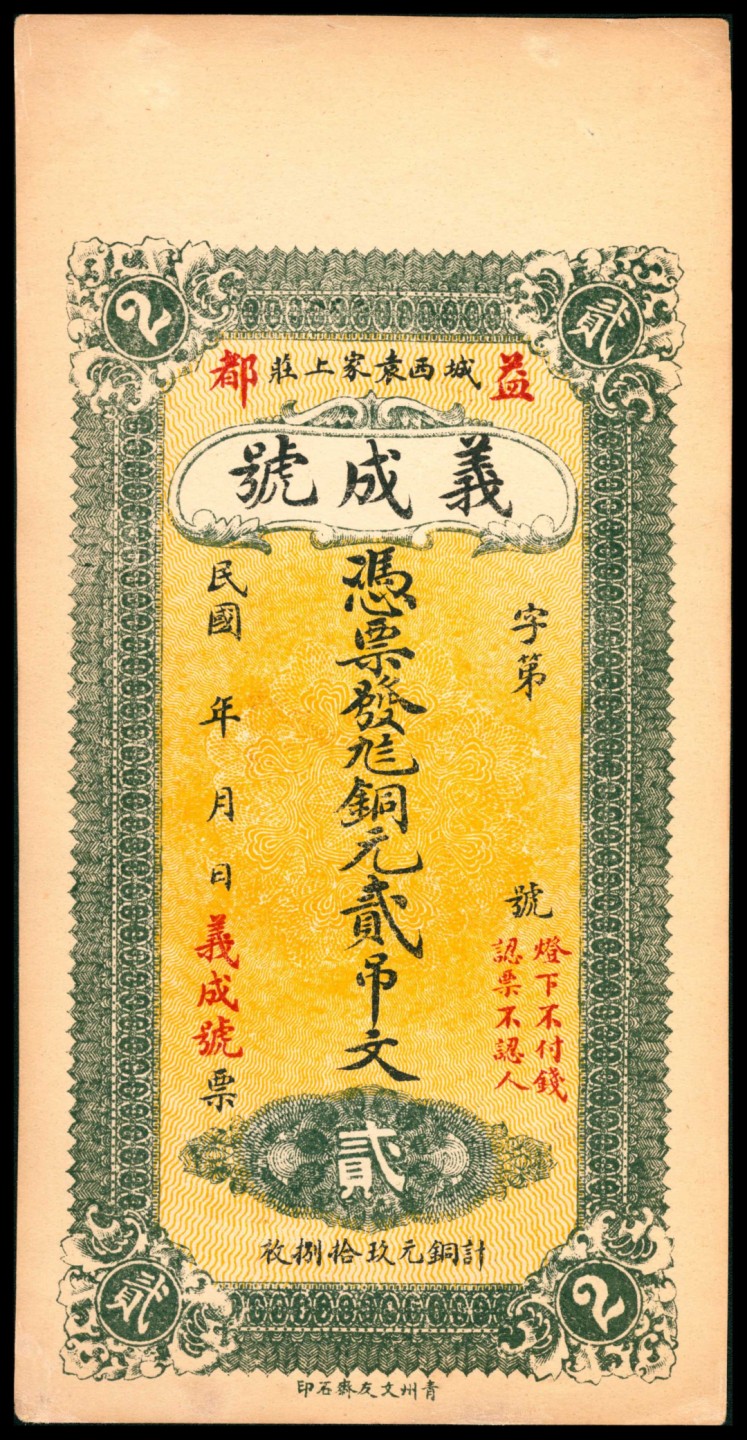 貳
2
益城西袁家上莊都
義成號
字第 號
燈下不付錢
認票不認人
憑票發兌銅元貳吊文
民國 年 月 日 義成號票
貳
計銅元玖拾捌枚
2
貳
青州文友齋石印